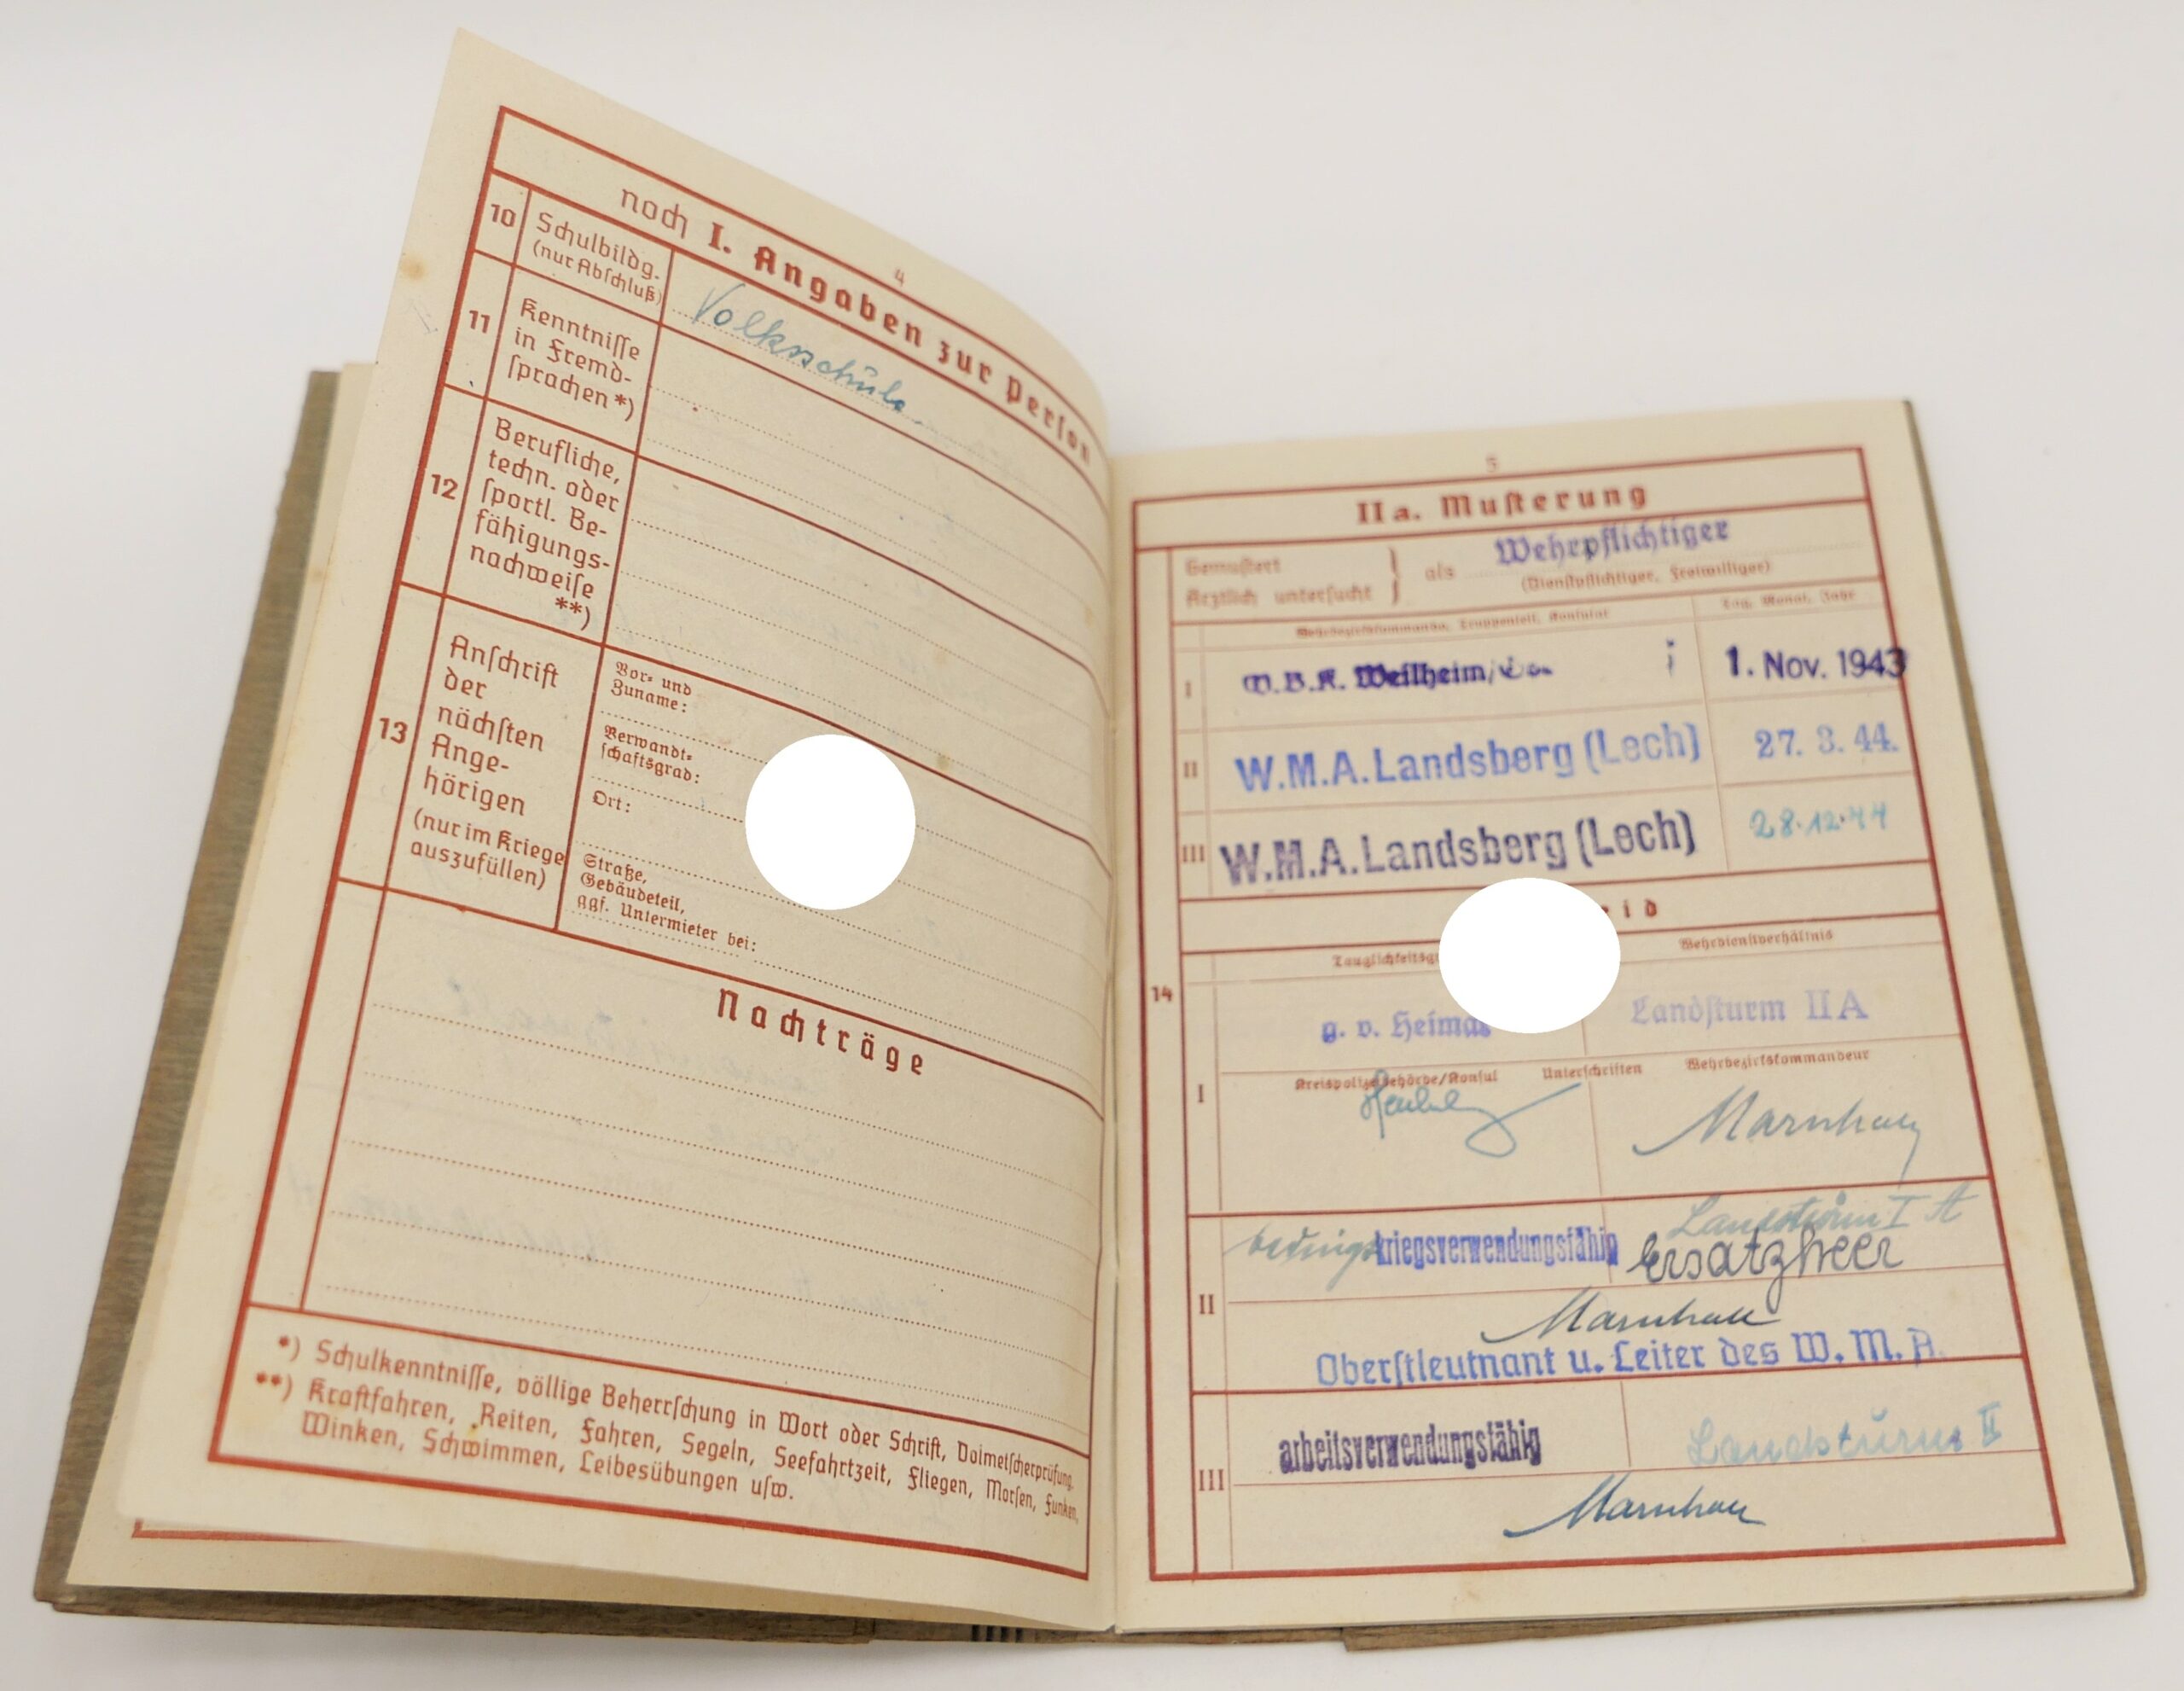 4
noch I. Angaben zur Person
10
Schulbildg.
(nur Abschluß)
Volksschule
11
Kenntnisse
in Fremd-
sprachen *)
12
Berufliche,
techn. oder
sportl. Be-
fähigungs-
nachweise
**)
13
Anschrift
der
nächsten
Ange-
hörigen
(nur im Kriege
auszufüllen)
Vor- und
Zuname:
Verwandt-
schaftsgrad:
Ort:
Straße,
Gebäudeteil,
ggf. Untermieter bei:
Nachträge
*) Schulkenntnisse, völlige Beherrschung in Wort oder Schrift, Dolmetscherprüfung.
**) Kraftfahren, Reiten, Fahren, Segeln, Seefahrtzeit, Fliegen, Morsen, Funken,
Winken, Schwimmen, Leibesübungen usw.
5
II a. Musterung
Gemustert
Ärztlich untersucht } als Wehrpflichtiger
(Dienstpflichtiger, Freiwilliger)
Wehrbezirkskommando, Truppenteil, Konsulat
Tag, Monat, Jahr
I W.B.K. Weilheim 1. Nov. 1943
II W.M.A. Landsberg (Lech) 27. 3. 44.
III W.M.A. Landsberg (Lech) 28.12.44
eid
14
Tauglichkeitsg
Wehrdienstverhältnis
g. v. Heimat
Landsturm II A
I
Kreispolizeibehörde/Konsul
Unterschriften
Wehrbezirkskommandeur
bedingt kriegsverwendungsfähig
Landsturm I A
Ersatzheer
II
Oberstleutnant u. Leiter des W. M. A.
arbeitsverwendungsfähig
Landsturm II
III